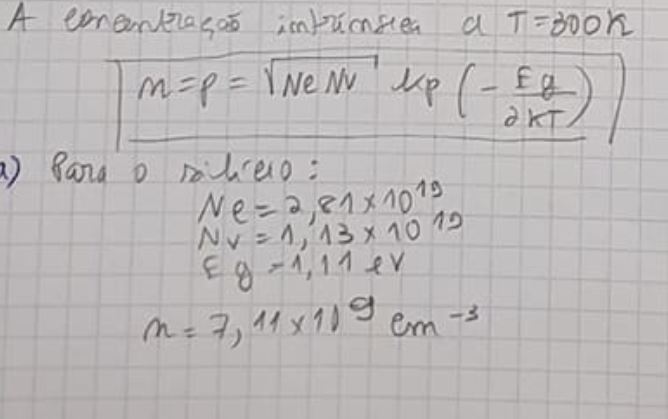 A concentração intrínseca a T=300K
n=p= √Nc Nv exp (- Eg / 2KT)
a) Para o silício:
Nc = 2,81 x 10^19
Nv = 1,13 x 10^19
Eg = 1,11 eV
n = 7,11 x 10^9 cm^-3